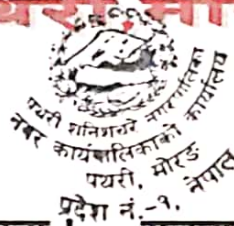 पथरी शनिश्चरे नगरपालिका
नगर कार्यपालिकाको कार्यालय
पथरी, मोरङ
नेपाल
प्रदेश नं.-१,